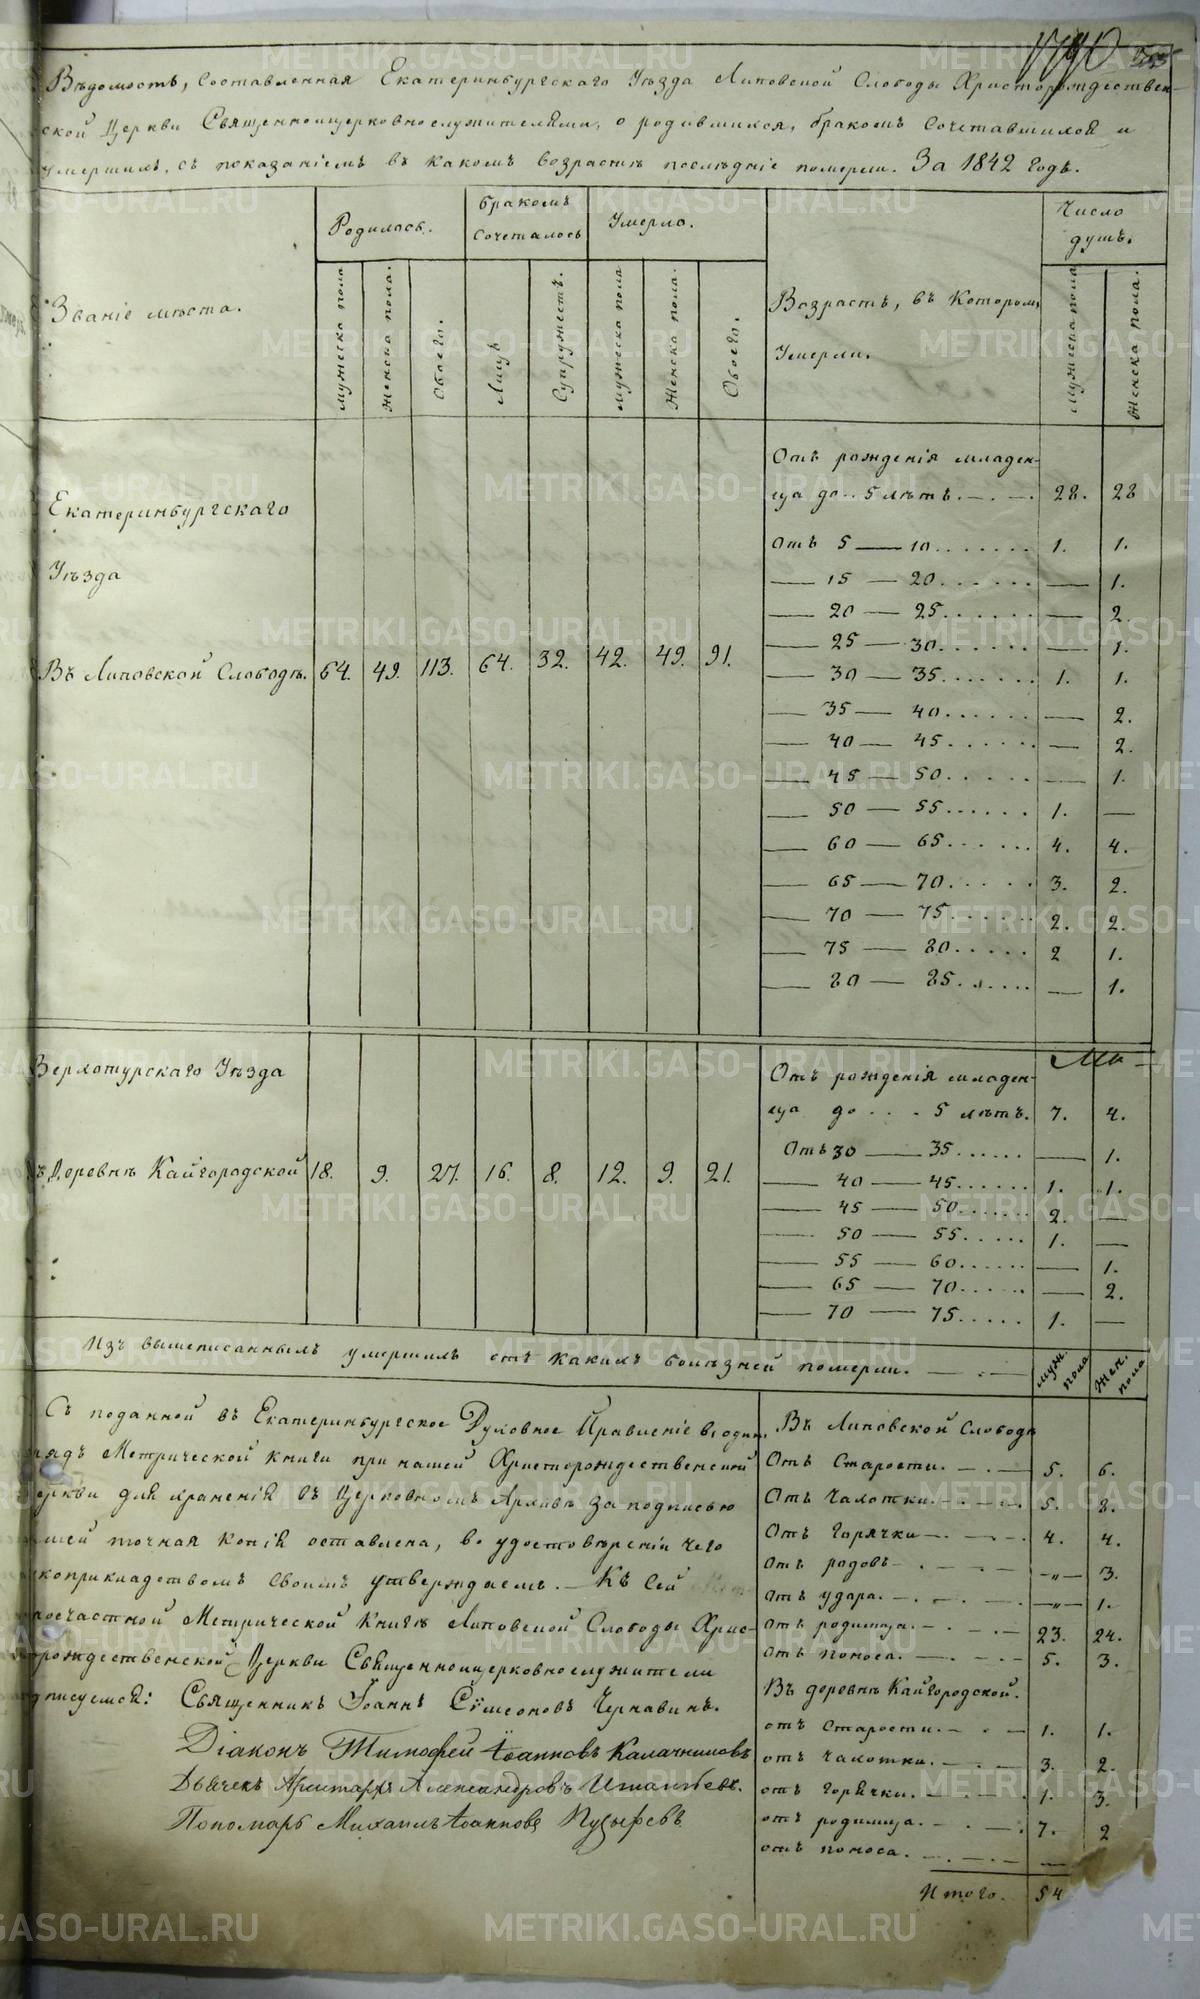 Вѣдомость, составленная Екатеринбургскаго Уѣзда Липовской Слободы Христорождествен-
ской Церкви Священноицерковнослужителями, о родившихся, бракомъ сочетавшихся и
умершихъ, съ показаніемъ въ какомъ возрастѣ послѣдніе померли. За 1842 годъ.
Званіе мѣста.
Родилось.
бракомъ сочеталось
Умерло.
Возрастъ, въ которомъ Умерли.
Число душъ.
мужеска пола
женска пола.
Обоего.
Лицъ
Супружествъ.
мужеска пола
женска пола.
Обоего.
мужеска пола
женска пола.
Екатеринбургскаго
Уѣзда
Въ Липовской Слободѣ. 64. 49. 113. 64. 32. 42. 49. 91.
Отъ рожденія младен-
ца до.. 5 лѣтъ. 28. 28
Отъ 5 — 10....... 1. 1.
— 15 — 20....... — 1.
— 20 — 25....... — 2.
— 25 — 30....... — 1.
— 30 — 35....... 1. 1.
— 35 — 40....... — 2.
— 40 — 45....... — 2.
— 45 — 50....... — 1.
— 50 — 55....... 1. —
— 60 — 65....... 4. 4.
— 65 — 70....... 3. 2.
— 70 — 75....... 2. 2.
— 75 — 80....... 2 1.
— 80 — 85....... — 1.
Верхотурскаго Уѣзда
Деревнѣ Кайгородской 18. 9. 27. 16. 8. 12. 9. 21.
Отъ рожденія младен-
ца до... 5 лѣтъ. 7. 4.
Отъ 30 — 35...... — 1.
— 40 — 45...... 1. 1.
— 45 — 50...... 2. —
— 50 — 55...... 1. —
— 55 — 60...... — 1.
— 65 — 70...... — 2.
— 70 — 75..... 1. —
Изъ вышеписанныхъ умершихъ отъ какихъ болѣзней померли. муж. пола жен. пола
Съ поданной въ Екатеринбургское Духовное Правленіе
Метрической книги при нашей Христорождественской
для храненія въ Церковномъ Архивѣ за подписью
точная копія оставлена, во удостовѣреніи чего
своимъ утверждаемъ. — Къ сей
Метрической книгѣ Липовской Слободы Хрис-
Церкви Священноицерковнослужители
Священникъ Іоаннъ Сѵмеоновъ Чернавинъ.
Діаконъ Тимофей Іоанновъ Калачниковъ
Дьячекъ Аристархъ Александровъ
Пономарь Михаилъ Іоанновъ Пузыревъ
Въ Липовской Слободѣ
Отъ Старости. 5. 6.
Отъ Чахотки. 5. 8.
Отъ горячки 4. 4.
Отъ родовъ —„— 3.
Отъ удара. —„— 1.
Отъ родимца. 23. 24.
Отъ поноса. 5. 3.
Въ деревнѣ Кайгородской.
отъ старости. 1. 1.
отъ чахотки. 3. 2.
отъ горячки. 1. 3.
отъ родимца. 7. 2
отъ поноса. —
Итого. 54
METRIKI.GASO-URAL.RU